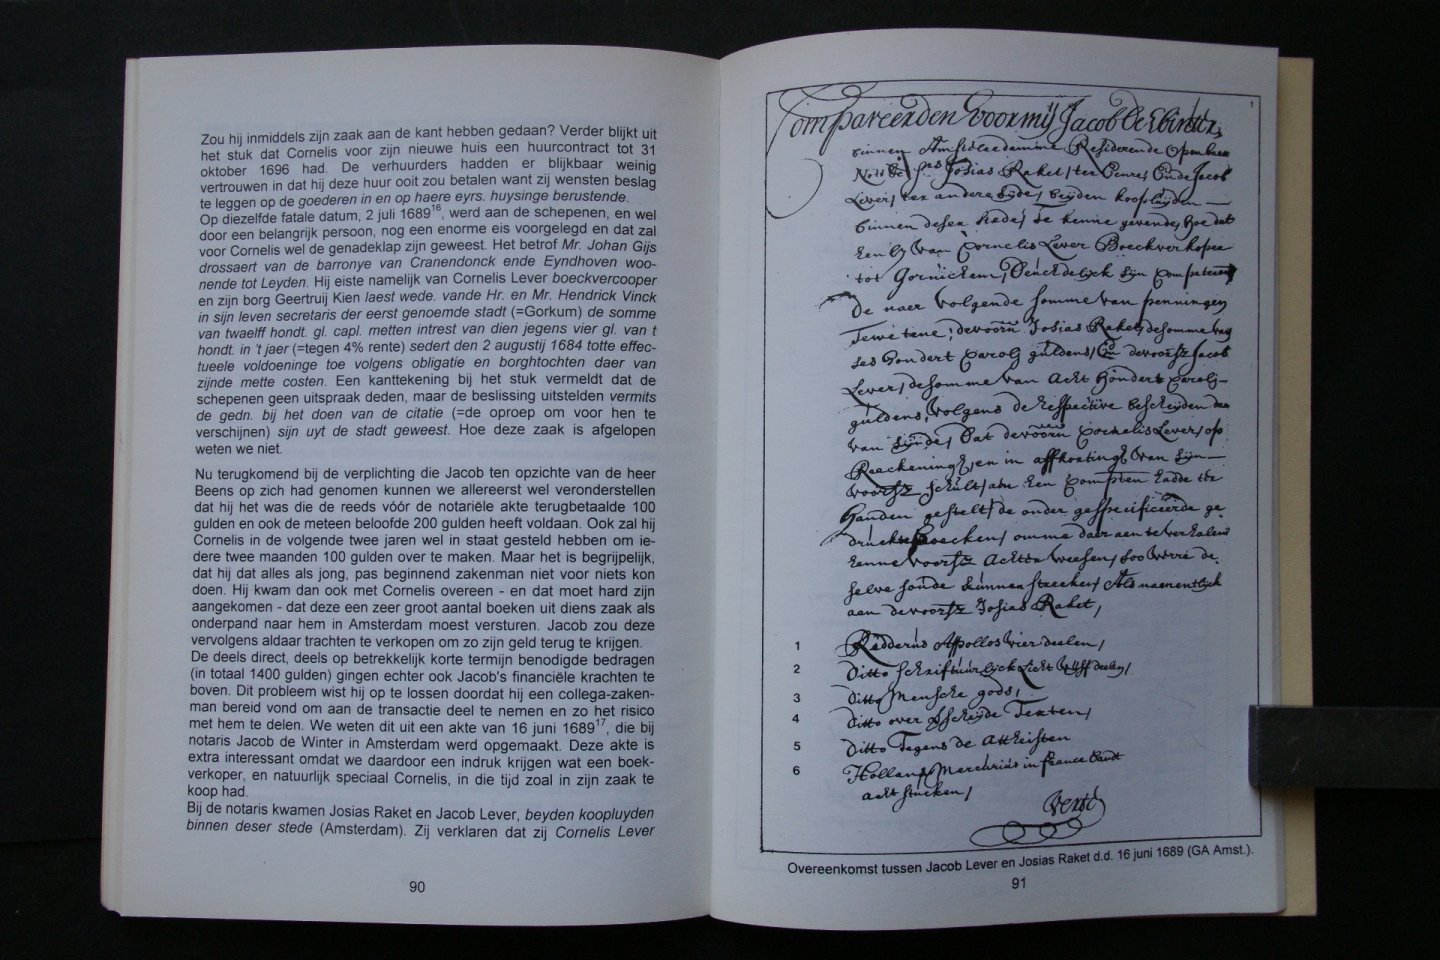 Zou hij inmiddels zijn zaak aan de kant hebben gedaan? Verder blijkt uit
het stuk dat Cornelis voor zijn nieuwe huis een huurcontract tot 31
oktober 1696 had. De verhuurders hadden er blijkbaar weinig
vertrouwen in dat hij deze huur ooit zou betalen want zij wensten beslag
te leggen op de goederen in en op haere eyrs. huysinge berustende.
Op diezelfde fatale datum, 2 juli 1689¹⁶, werd aan de schepenen, en wel
door een belangrijk persoon, nog een enorme eis voorgelegd en dat zal
voor Cornelis wel de genadeklap zijn geweest. Het betrof Mr. Johan Gijs
drossaert van de barronye van Cranendonck ende Eyndhoven woo-
nende tot Leyden. Hij eiste namelijk van Cornelis Lever boeckvercooper
en zijn borg Geertruij Kien laest wede. vande Hr. en Mr. Hendrick Vinck
in sijn leven secretaris der eerst genoemde stadt (=Gorkum) de somme
van twaelff hondt. gl. capl. metten intrest van dien jegens vier gl. van t
hondt. in 't jaer (=tegen 4% rente) sedert den 2 augustij 1684 totte effec-
tueele voldoeninge toe volgens obligatie en borghtochten daer van
zijnde mette costen. Een kanttekening bij het stuk vermeldt dat de
schepenen geen uitspraak deden, maar de beslissing uitstelden vermits
de gedn. bij het doen van de citatie (=de oproep om voor hen te
verschijnen) sijn uyt de stadt geweest. Hoe deze zaak is afgelopen
weten we niet.
Nu terugkomend bij de verplichting die Jacob ten opzichte van de heer
Beens op zich had genomen kunnen we allereerst wel veronderstellen
dat hij het was die de reeds vóór de notariële akte terugbetaalde 100
gulden en ook de meteen beloofde 200 gulden heeft voldaan. Ook zal hij
Cornelis in de volgende twee jaren wel in staat gesteld hebben om ie-
dere twee maanden 100 gulden over te maken. Maar het is begrijpelijk,
dat hij dat alles als jong, pas beginnend zakenman niet voor niets kon
doen. Hij kwam dan ook met Cornelis overeen - en dat moet hard zijn
aangekomen - dat deze een zeer groot aantal boeken uit diens zaak als
onderpand naar hem in Amsterdam moest versturen. Jacob zou deze
vervolgens aldaar trachten te verkopen om zo zijn geld terug te krijgen.
De deels direct, deels op betrekkelijk korte termijn benodigde bedragen
(in totaal 1400 gulden) gingen echter ook Jacob's financiële krachten te
boven. Dit probleem wist hij op te lossen doordat hij een collega-zaken-
man bereid vond om aan de transactie deel te nemen en zo het risico
met hem te delen. We weten dit uit een akte van 16 juni 1689¹⁷, die bij
notaris Jacob de Winter in Amsterdam werd opgemaakt. Deze akte is
extra interessant omdat we daardoor een indruk krijgen wat een boek-
verkoper, en natuurlijk speciaal Cornelis, in die tijd zoal in zijn zaak te
koop had.
Bij de notaris kwamen Josias Raket en Jacob Lever, beyden koopluyden
binnen deser stede (Amsterdam). Zij verklaren dat zij Cornelis Lever
90
1
Compareerden voor mij Jacob de Winter,
binnen Amsteledamme Residerende Openbaer
Josias Raket, ter Eenre, Ende Jacob
Lever, ter andere zijde, beijden koopluijden
binnen deser stede, te kenne gevende, hoe dat
hen bij van Cornelis Lever Boeckverkoper
tot Gornickem, Deuchdelijck sijn Competeren
De naer volgende somme van penningen
Te wetene, devoorn Josias Raket, de somme van
ses hondert Caroli guldens, En devoorsz Jacob
Lever, de somme van Acht Hondert Caroli-
guldens, volgens de respective bescheijden daer
van sijnde, Dat devoorn Cornelis Lever, op
Reeckeninge, en in affkortinge van sijn
voorsz schult, aen hen Comptten hadde ter
Handen gestelt, de onder gespecificeerde ge-
druckte Boecken, omme daer aen te verhalen
henne voorsz Achter weesen, soo verre de
selve soude kunnen strecken, Als namentlijck
aen devoorsz Josias Raket,
1 Ridderus Apollos vier deelen,
2 Ditto schriftuurlijck Licht vijff deelen,
3 Ditto Mensche gods,
4 Ditto over Scheijde Texten,
5 Ditto Tegens de Attheisten
6 Hollans Mercurius in france bandt
acht stucken,
Overeenkomst tussen Jacob Lever en Josias Raket d.d. 16 juni 1689 (GA Amst.).
91